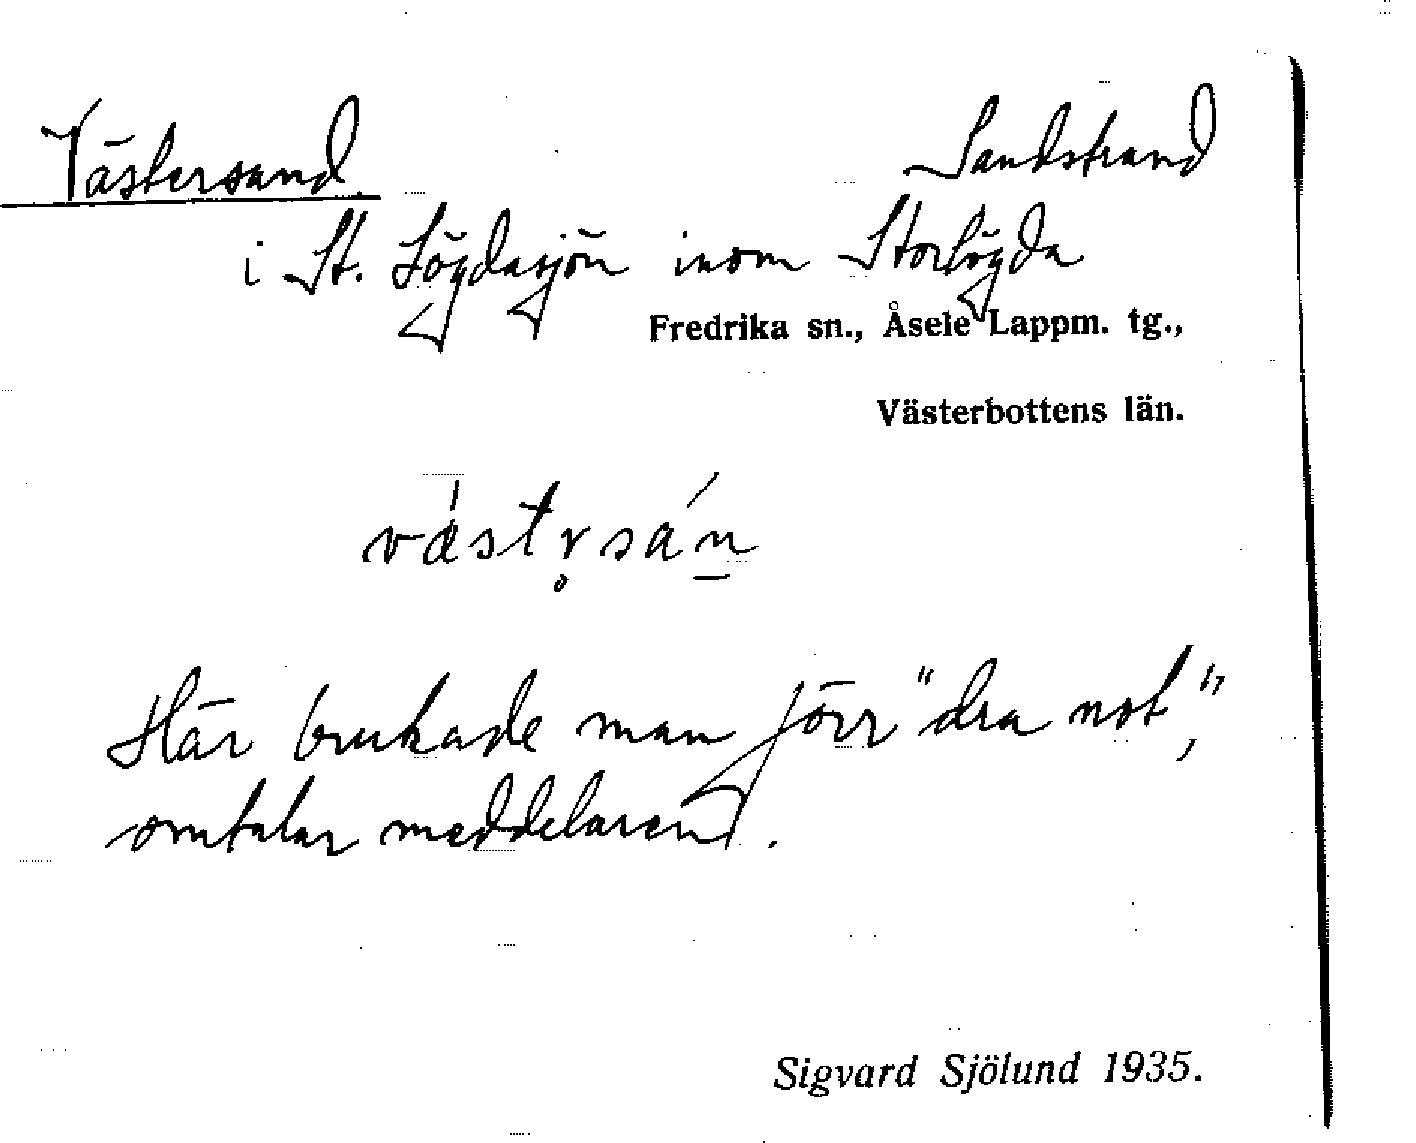 Västersand. Sandstrand
i St. Lögdasjön inom Storlögda
Fredrika sn., Åsele Lappm. tg.,
Västerbottens län.
västr̥sán̲
Här brukade man förr "dra not",
omtalar meddelaren.
Sigvard Sjölund 1935.